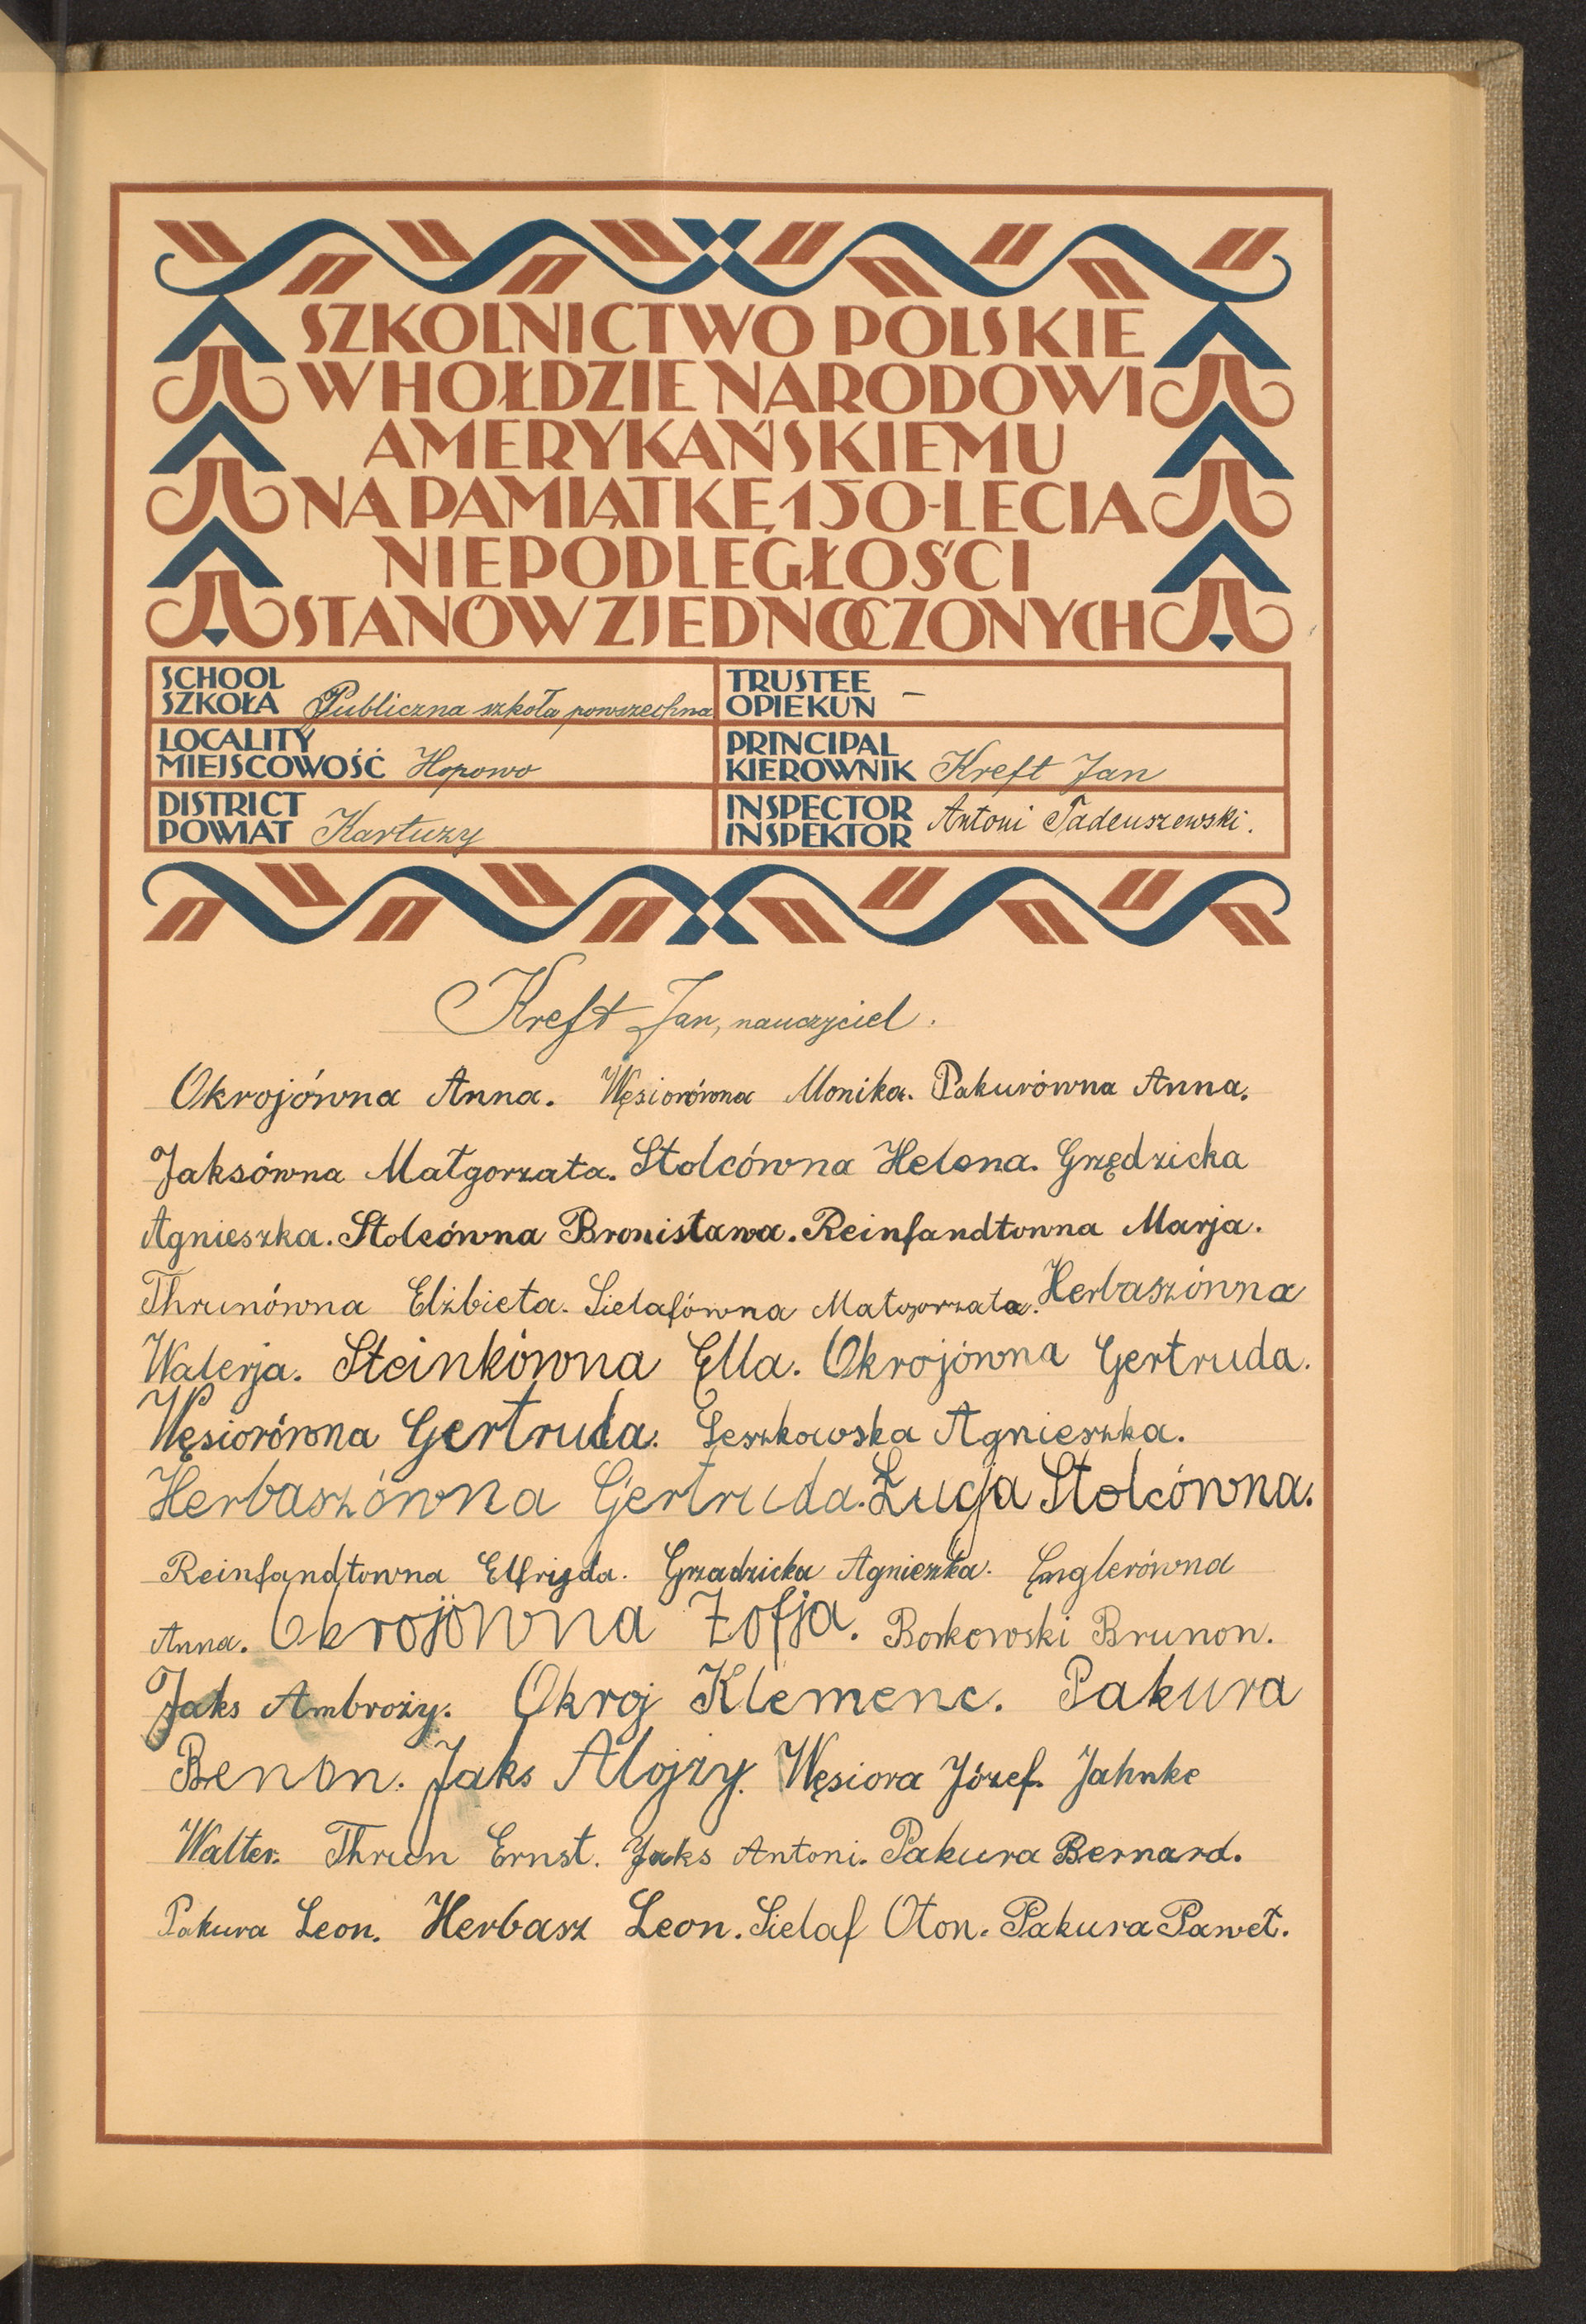 SZKOLNICTWO POLSKIE
W HOŁDZIE NARODOWI
AMERYKAŃSKIEMU
NA PAMIĄTKĘ 150-LECIA
NIEPODLEGŁOŚCI
STANÓW ZJEDNOCZONYCH
SCHOOL
SZKOŁA Publiczna szkoła powszechna
TRUSTEE
OPIEKUN –
LOCALITY
MIEJSCOWOŚĆ Hopowo
PRINCIPAL
KIEROWNIK Kreft Jan
DISTRICT
POWIAT Kartuzy
INSPECTOR
INSPEKTOR Antoni Tadeuszewski.
Kreft Jan, nauczyciel.
Okrojówna Anna. Węsiorówna Monika. Pakurówna Anna.
Jaksówna Małgorzata. Stolcówna Helena. Grzędzicka
Agnieszka. Stolcówna Bronisława. Reinfandtowna Marja.
Thrunówna Elżbieta. Sielafówna Małgorzata. Herbaszówna
Walerja. Steinkówna Ella. Okrojówna Gertruda.
Węsiorówna Gertruda. Leszkowska Agnieszka.
Herbaszówna Gertruda. Łucja Stolcówna.
Reinfandtowna Elfrigda. Grzadzicka Agnieszka. Englerówna
Anna. Okrojówna Zofja. Borkowski Brunon.
Jaks Ambroży. Okroj Klemenc. Pakura
Benon. Jaks Alojzy. Węsiora Józef. Jahnke
Walter. Thrun Ernst. Jaks Antoni. Pakura Bernard.
Pakura Leon. Herbasz Leon. Sielaf Oton. Pakura Paweł.